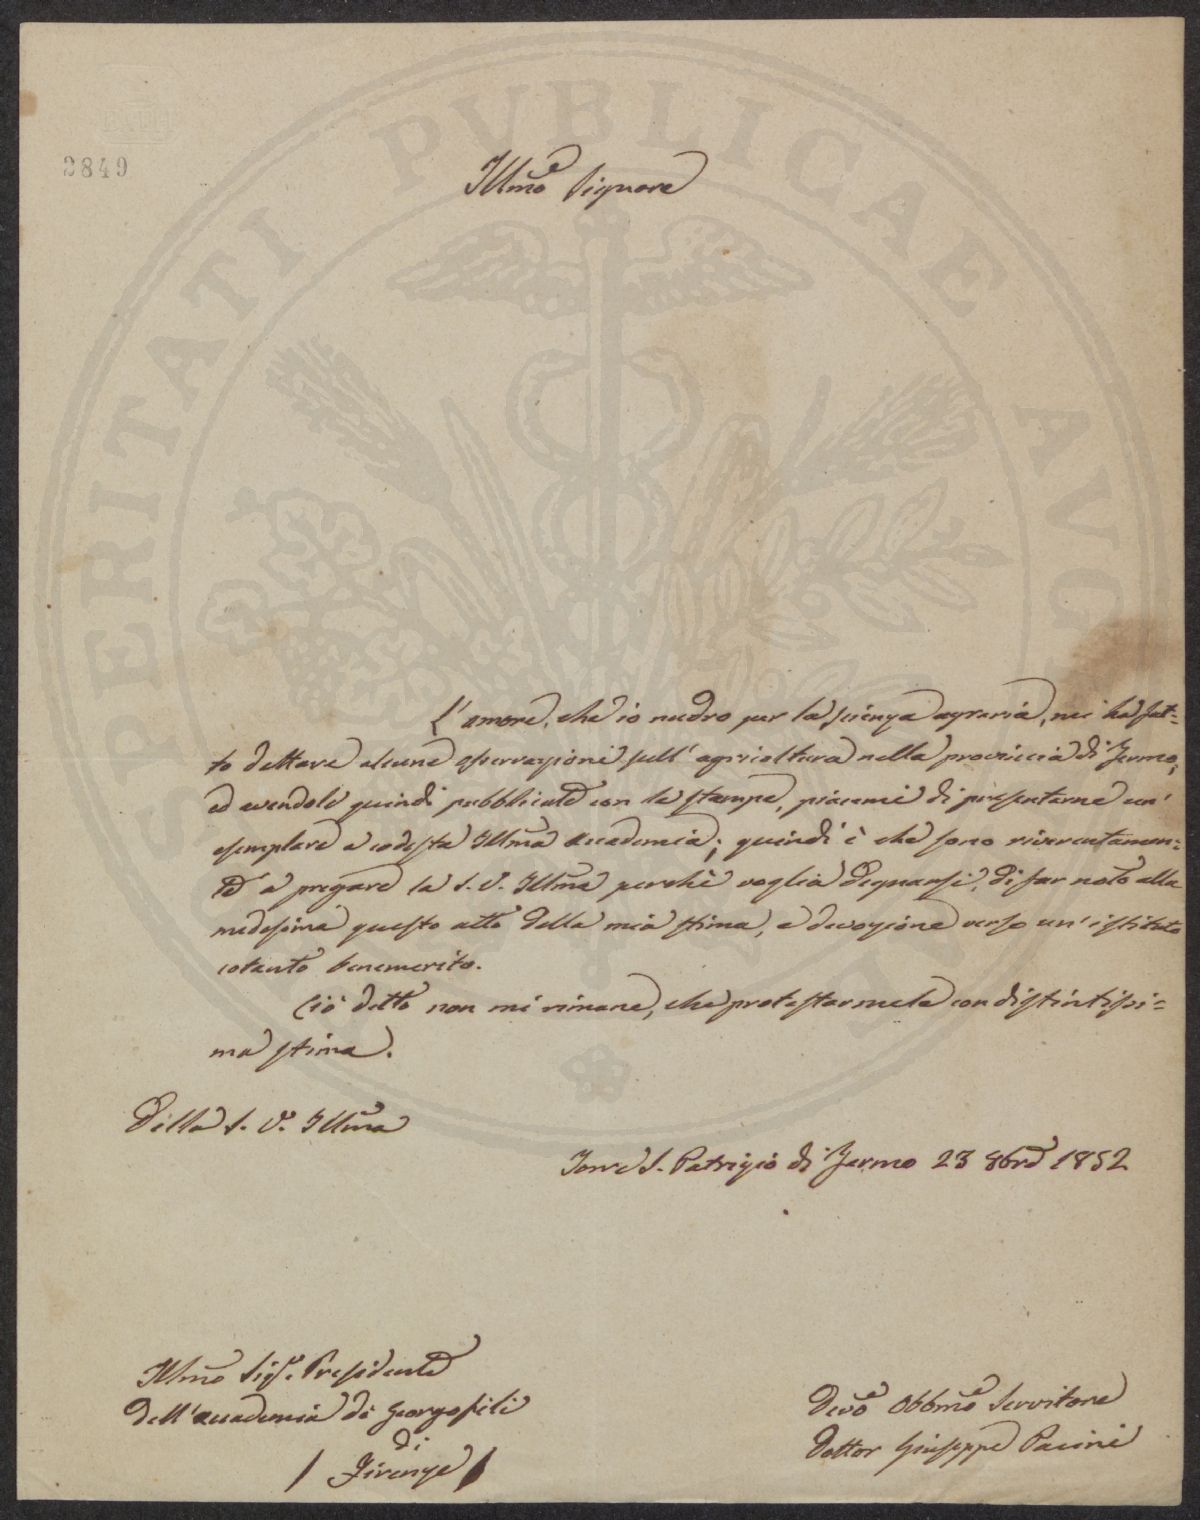 2849
Illmo Signore
L'amore, che io nudro per la scienza agraria, mi ha fat=
to dettare alcune osservazioni sull'agricoltura nella provincia di Fermo,
ed avendole quindi pubblicate con le stampe, piacemi di presentarne un'
esemplare a codesta Illma Accademia; quindi è che sono riverentemen=
te a pregare la S. V. Illma perchè voglia degnarsi, di far noto alla
medesima questo atto della mia stima, e devozione verso un'istituto
cotanto benemerito.
Ciò detto non mi rimane, che protestarmele con distintissi=
ma stima.
Della S. V. Illma
Torre S. Patrizio di Fermo 23 8bre 1852
Illmo Sigr. Presidente
dell'Accademia di Georgofili
di
/ Firenze /
Devo Obbmo Servitore
Dottor Giuseppe Pacini
PROSPERITATI PUBLICAE AUG